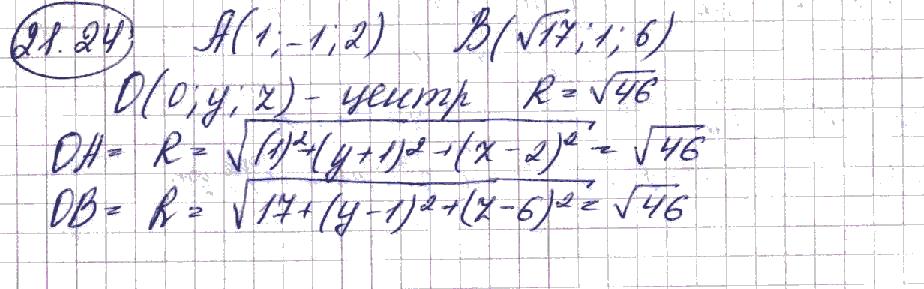 21.24 A(1;-1;2) B(√17;1;6)
O(0;y;z) - центр R = √46
OA = R = √((1)²+(y+1)²+(z-2)²) = √46
OB = R = √(17+(y-1)²+(z-6)²) = √46